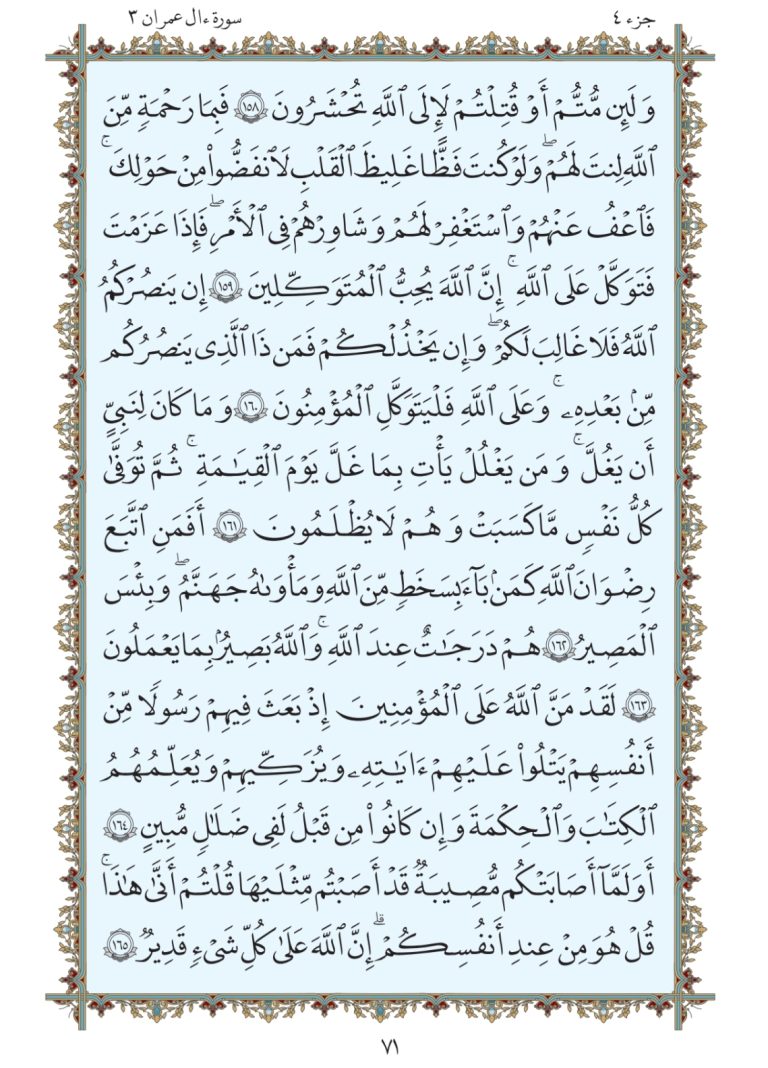 سورة ءال عمران ٣
جزء ٤
وَلَئِن مُّتُّمْ أَوْ قُتِلْتُمْ لَإِلَى ٱللَّهِ تُحْشَرُونَ ١٥٨ فَبِمَا رَحْمَةٍ مِّنَ
ٱللَّهِ لِنتَ لَهُمْ ۖ وَلَوْ كُنتَ فَظًّا غَلِيظَ ٱلْقَلْبِ لَٱنفَضُّوا۟ مِنْ حَوْلِكَ ۖ
فَٱعْفُ عَنْهُمْ وَٱسْتَغْفِرْ لَهُمْ وَشَاوِرْهُمْ فِى ٱلْأَمْرِ ۖ فَإِذَا عَزَمْتَ
فَتَوَكَّلْ عَلَى ٱللَّهِ ۚ إِنَّ ٱللَّهَ يُحِبُّ ٱلْمُتَوَكِّلِينَ ١٥٩ إِن يَنصُرْكُمُ
ٱللَّهُ فَلَا غَالِبَ لَكُمْ ۖ وَإِن يَخْذُلْكُمْ فَمَن ذَا ٱلَّذِى يَنصُرُكُم
مِّنۢ بَعْدِهِۦ ۗ وَعَلَى ٱللَّهِ فَلْيَتَوَكَّلِ ٱلْمُؤْمِنُونَ ١٦٠ وَمَا كَانَ لِنَبِىٍّ
أَن يَغُلَّ ۚ وَمَن يَغْلُلْ يَأْتِ بِمَا غَلَّ يَوْمَ ٱلْقِيَـٰمَةِ ۚ ثُمَّ تُوَفَّىٰ
كُلُّ نَفْسٍ مَّا كَسَبَتْ وَهُمْ لَا يُظْلَمُونَ ١٦١ أَفَمَنِ ٱتَّبَعَ
رِضْوَٰنَ ٱللَّهِ كَمَنۢ بَآءَ بِسَخَطٍ مِّنَ ٱللَّهِ وَمَأْوَىٰهُ جَهَنَّمُ ۖ وَبِئْسَ
ٱلْمَصِيرُ ١٦٢ هُمْ دَرَجَـٰتٌ عِندَ ٱللَّهِ ۗ وَٱللَّهُ بَصِيرٌۢ بِمَا يَعْمَلُونَ
١٦٣ لَقَدْ مَنَّ ٱللَّهُ عَلَى ٱلْمُؤْمِنِينَ إِذْ بَعَثَ فِيهِمْ رَسُولًا مِّنْ
أَنفُسِهِمْ يَتْلُوا۟ عَلَيْهِمْ ءَايَـٰتِهِۦ وَيُزَكِّيهِمْ وَيُعَلِّمُهُمُ
ٱلْكِتَـٰبَ وَٱلْحِكْمَةَ وَإِن كَانُوا۟ مِن قَبْلُ لَفِى ضَلَـٰلٍ مُّبِينٍ ١٦٤
أَوَلَمَّآ أَصَـٰبَتْكُم مُّصِيبَةٌ قَدْ أَصَبْتُم مِّثْلَيْهَا قُلْتُمْ أَنَّىٰ هَـٰذَا ۖ
قُلْ هُوَ مِنْ عِندِ أَنفُسِكُمْ ۗ إِنَّ ٱللَّهَ عَلَىٰ كُلِّ شَىْءٍ قَدِيرٌ ١٦٥
٧١